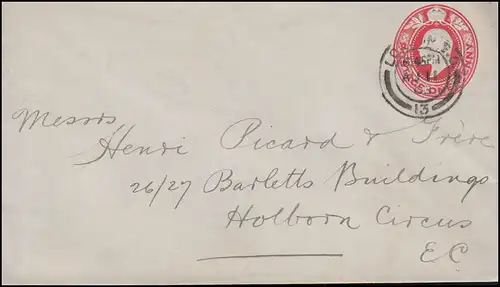 Messrs
Henri Picard & Frère
26/27 Barletts Buildings
Holborn Circus
E.C
13